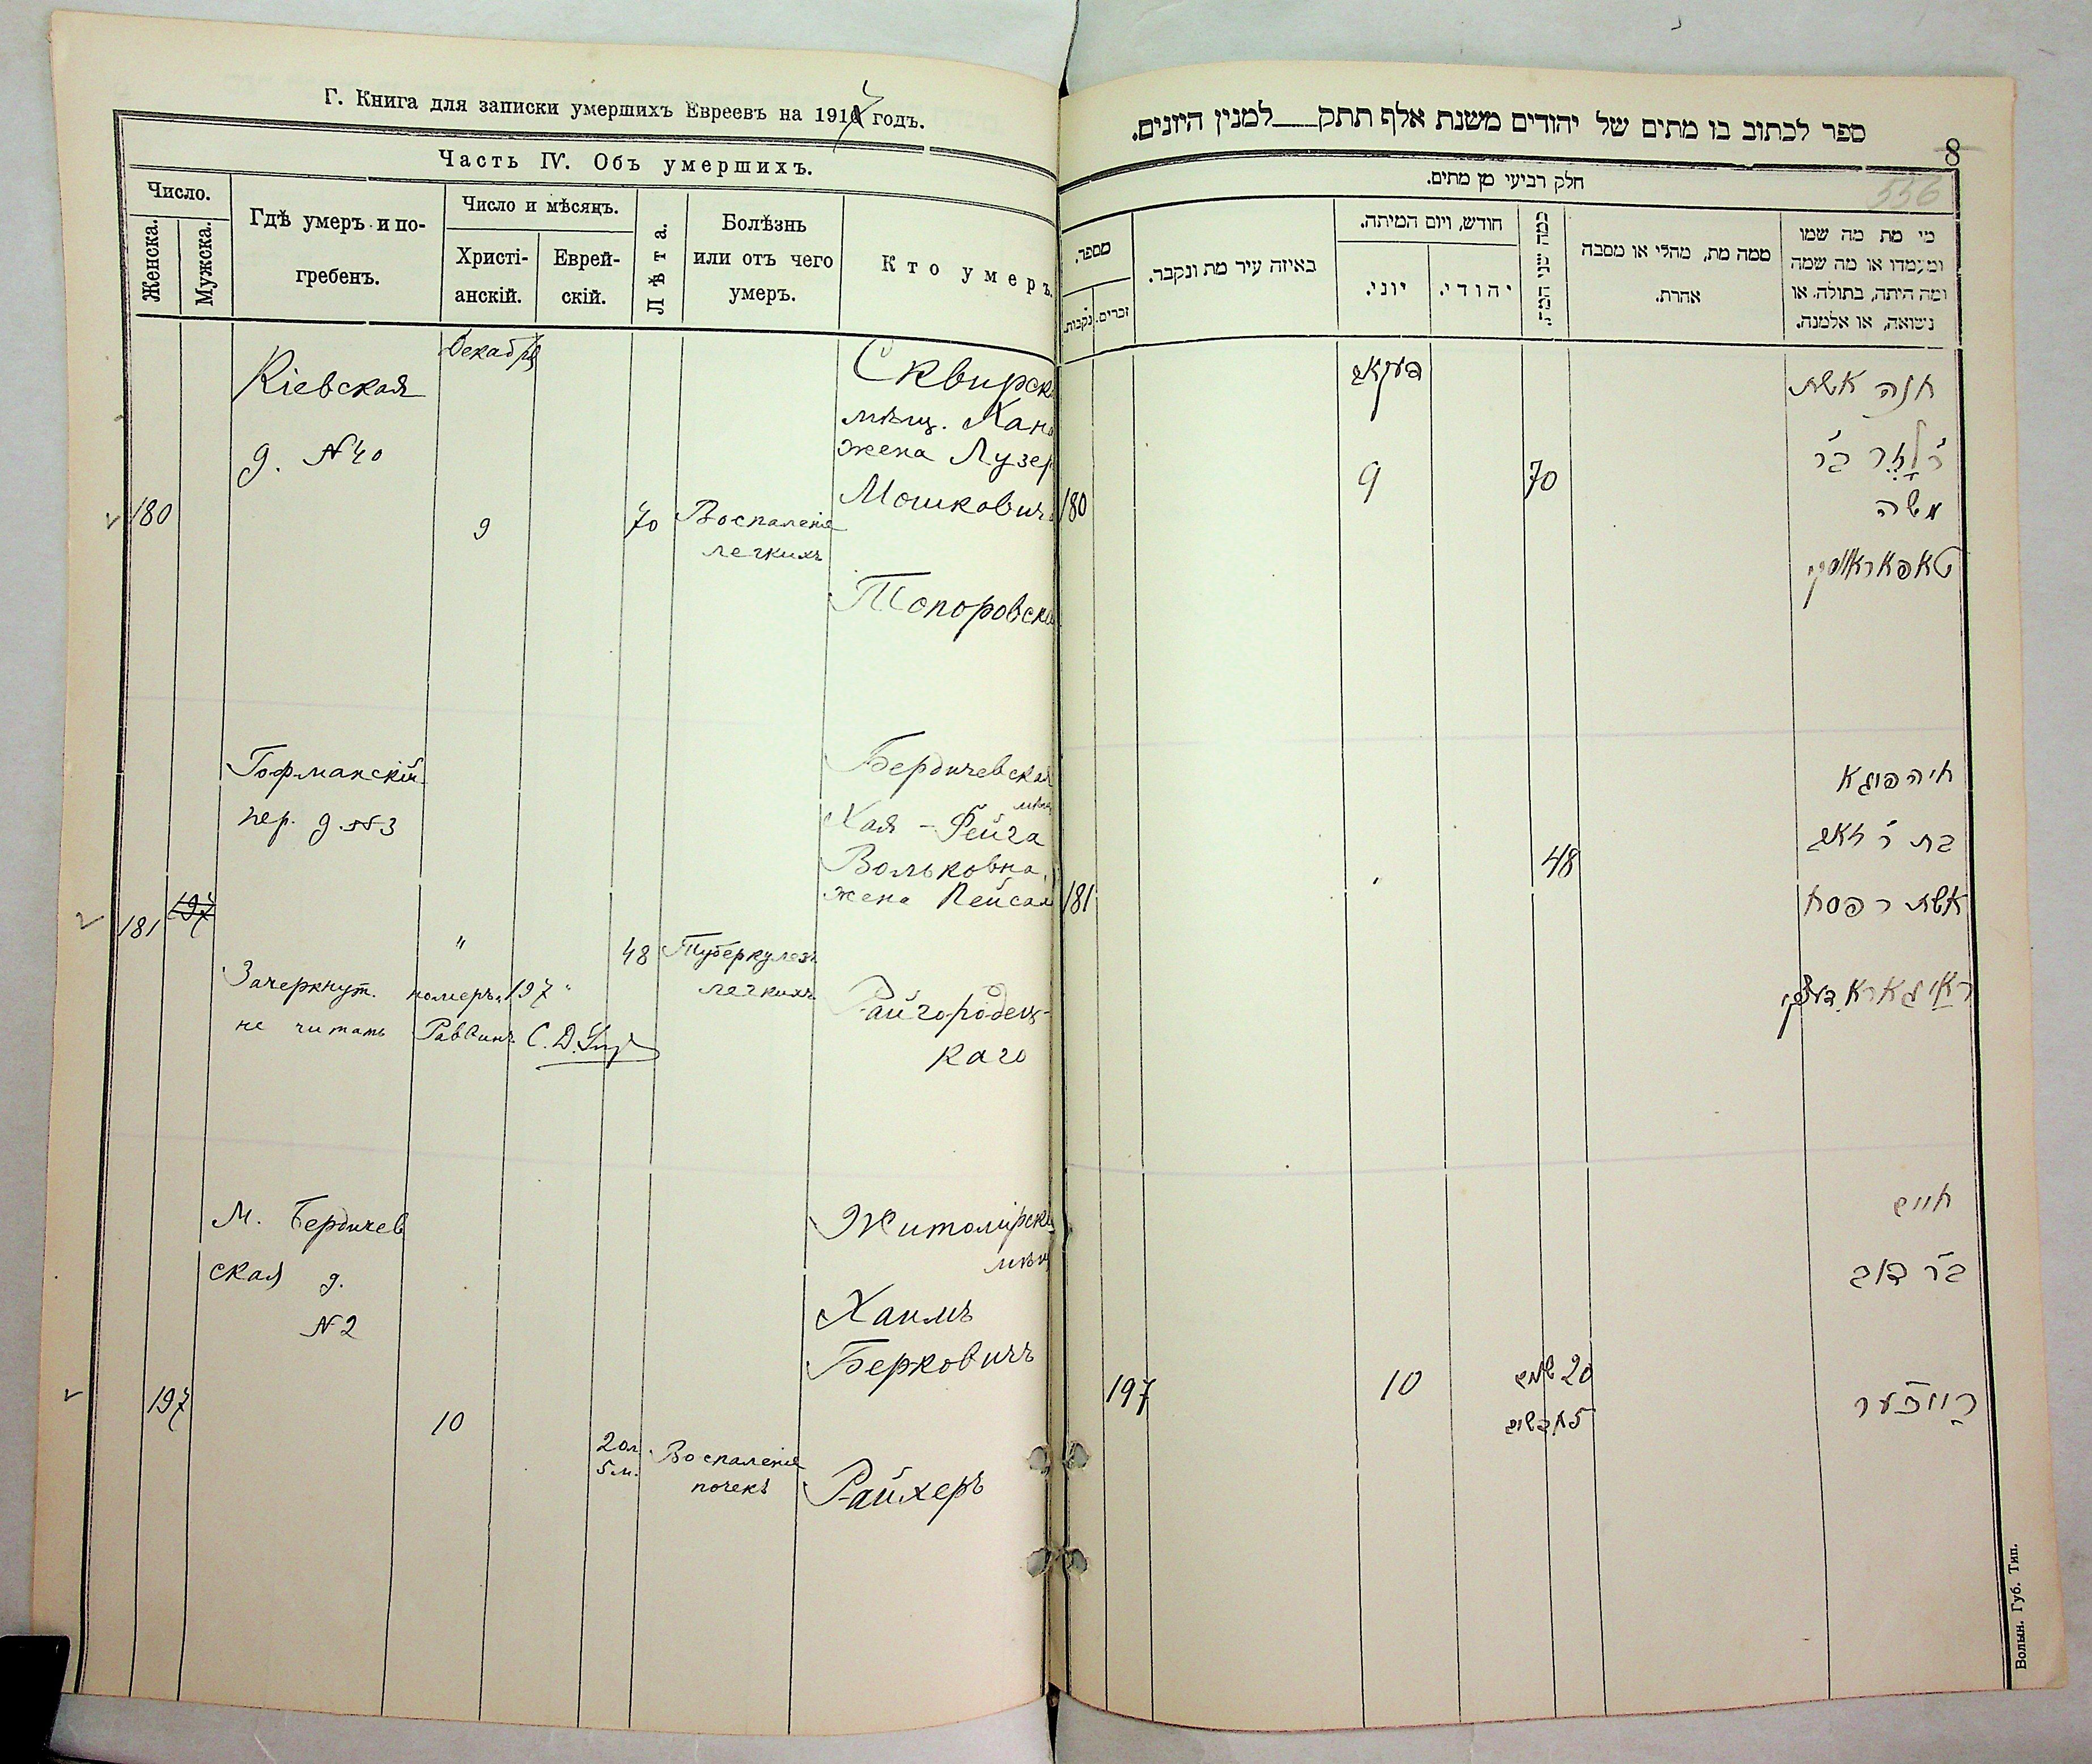 Г. Книга для записки умершихъ Евреевъ на 1917 годъ.
Часть IV. Объ умершихъ.
Число.
Женска.
Мужска.
Гдѣ умеръ и по-
гребенъ.
Число и мѣсяцъ.
Христі-
анскій.
Еврей-
скій.
Лѣта.
Болѣзнь
или отъ чего
умеръ.
Кто умеръ.
180
Кіевская
д. №40
Декабря
9
70
Воспаленіе
легкихъ
Сквирск
мѣщ. Хана
жена Лузер
Мошковича
Топоровска
181
197
Гофманскій
пер. д. №3
"
48
Туберкулезъ
легкихъ
Бердичевская
мѣщ
Хая - Фейга
Вольковна,
жена Пейсах
Райгородец-
каго
Зачеркнут. номеръ 197
не читать Раввинъ С. Д.
197
М. Бердичев
ская д.
№2
10
20л.
5м.
Воспаленіе
почекъ
Житомірск
мѣщ
Хаимъ
Берковичъ
Райхеръ
ספר לכתוב בו מתים של יהודים משנת אלף תתק___למנין היזנים.
8
336
חלק רביעי מן מתים.
מספר.
נקבות.
זכרים.
באיזה עיר מת ונקבר.
חודש, ויום המיתה.
יוני.
יהודי.
כמה שני המת
ממה מת, מחלי או מסבה
אהרת.
מי מת מה שמו
ומעמדו או מה שמה
ומה היתה, בתולה, או
נשואה, או אלמנה.
180
דעקאב
9
70
חנה אשת
ר' לאזר בר'
משה
טאפאראווסקי
181
48
חיה פייגא
בת ר' וואב
אשת ר פסח
ראיגאראדעצקי
197
10
20 שנים
5 חדשים
חיים
בר דוב
רייכער
Волын. Губ. Тип.